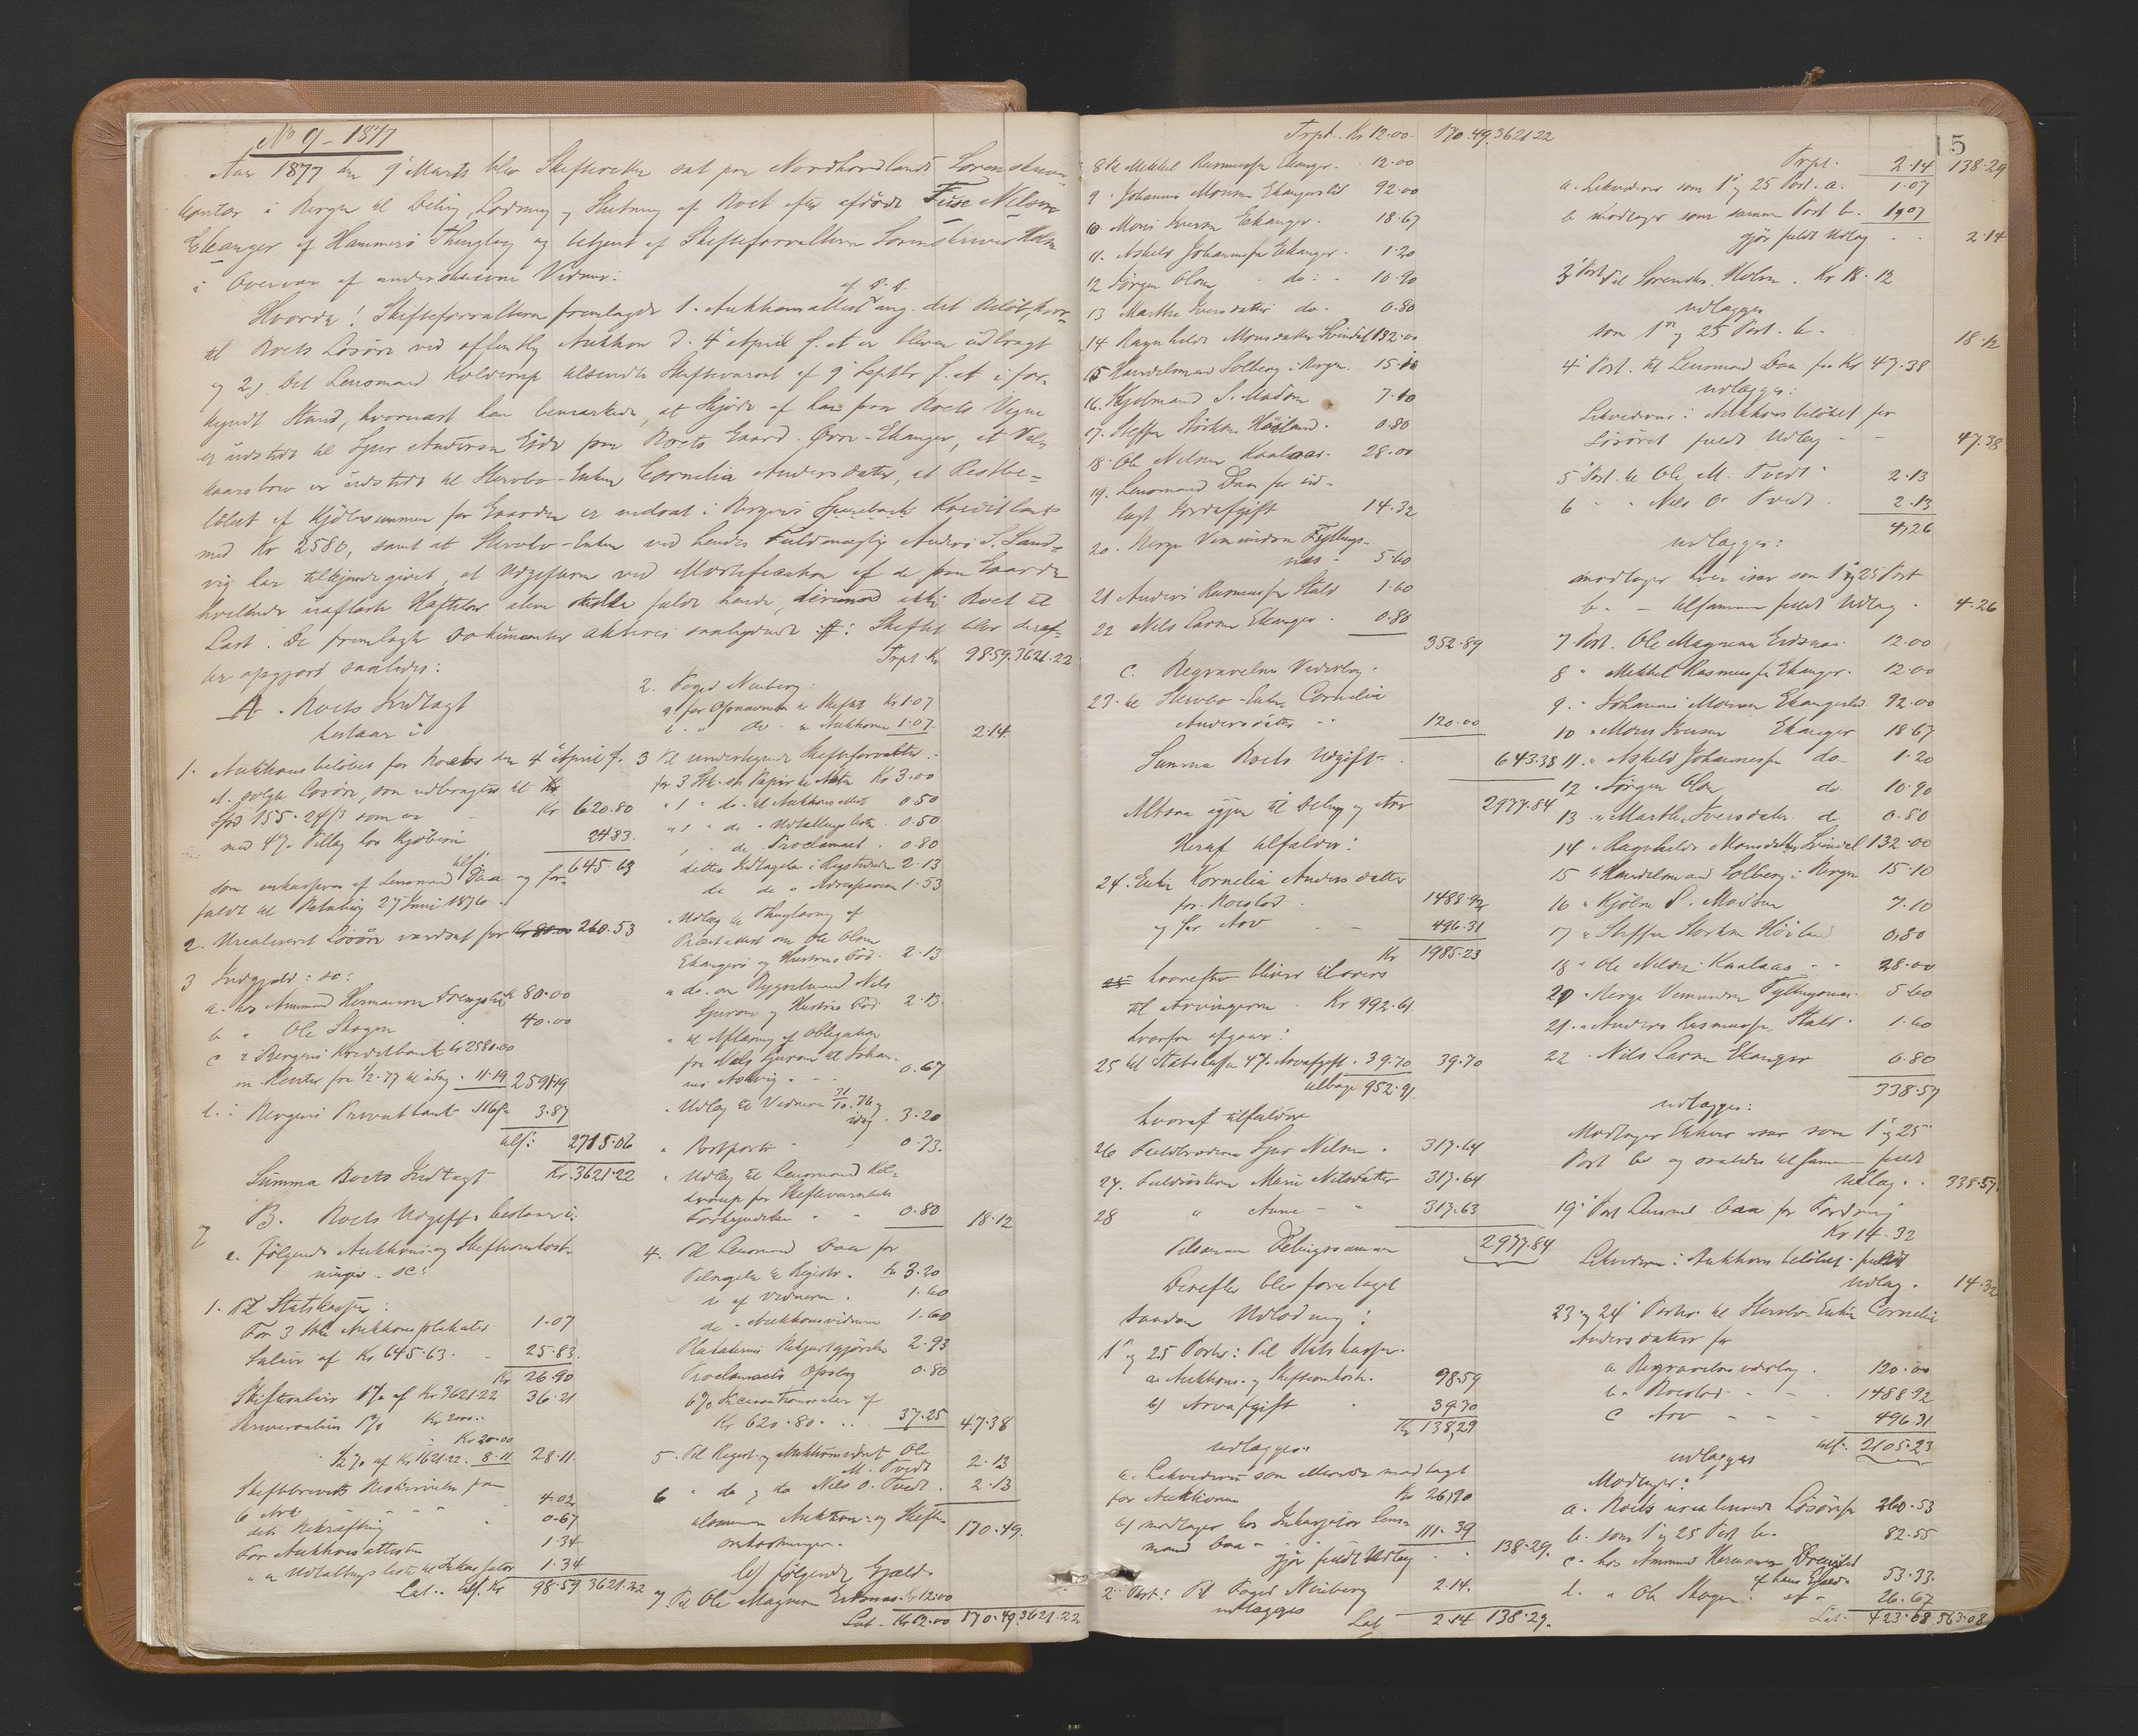 No 9 - 1877
Aar 1877 den 9 Marts blev Skifteretten sat paa Nordhordlands Sorenskriver
kontor i Bergen til Deling, Lodning og Slutning af Boet efter afdøde Tuse Nilsen
Ekanger af Hammers Thinglag og betjent af Skifteforvalteren Sorenskriver Holm
i Overvær af underskrevne Vidner:
Hvorda! Skifteforvalteren fremlagde 1. Auktionsattest ang. det Beløb, hvor-
til Boets Løsøre ved offentlig Auktion d. 4 April f. A. er bleven udbragt
og 2) Det Lensmand Kolderup tilsendte Skiftevarsel af 9 Septbr f. A. i for-
kyndt Stand, hvornæst han bemærkede, at Skjøde af ham paa Boets Vegne
er udstedt til Sjur Andersen Eide paa Boets Gaard Øvre-Ekanger, at Vil-
kaarsbrev er udstedt til Stervbo-Enken Cornelia Andersdatter, at Restbe-
løbet af Kjøbesummen for Gaarden er indsat i Bergens Kreditbank
med Kr 2580, samt at Stervbo-Enken ved hendes Fuldmægtig Anders S. Sand-
vig har tilkjendegivet, at Udgifterne ved Mortification af de paa Gaarden
heftende uaflæste Heftelser alene skulde falde hende, ikke Boet til
Last. De fremlagte Dokumenter akteres saalydende: Skiftet blev deref-
ter opgjort saaledes:
A. Boets Indtægt
bestaar i
1. Auktionsbeløbet for Boets den 4 April f.
A. solgte Løsøre, som udbragtes til
Spd 155. 24 β som er Kr 620.80
med 4% Tillæg hos Kjøberne 24.83.
tils. 645.63
som inkasseres af Lensmand Daa og for-
faldt til Betaling 27 Juni 1876.
2. Urealiseret Løsøre værdsat for 260.53
3 Indgjæld: sc:
a. hos Ammund Hermansen 80.00
b " Ole Skogen 40.00
c i Bergens Kreditbank Kr 2580.00
m. Renter fra 1/2-77 til idag 11.19 2591.19
d. i Bergens Privatbank 3.87
tils: 2715.06
Summa Boets Indtægt Kr. 3621.22
B. Boets Udgift bestaar i:
a. følgende Auktions- og Skifteomkost-
ninger. sc:
1. Til Statskassen:
For 3 Auktionsplakater 1.07
Salær af Kr 645.63. 25.83.
Kr 26.90
Skiftesalær 1% af Kr 3621.22 36.21
Skriversalær 1% Kr 2000..
Kr 20.00
1/2% af Kr 1621.22. 8.11 28.11.
Skiftebrevets Beskrivelse paa
6 Ark 4.02
dets Bekræftelse 0.67
For Auktionsattesten 1.34
" Udtallingsliste til Inkassator 1.34
Lat. tils. Kr 98.59 3621.22
Trpt Kr 98.59. 3621.22
2. Foged Nieberg:
a for Opnævnelse til Skiftet Kr 1.07
b. " do " Auktionen 1.07. 2.14.
3 Til underskrevne Skifteforvalter:
for 3 Stk. st. Papir til Akten Kr 3.00
" 1 " do til Auktionsattest 0.50
" 1 " do " Udtallingsliste 0.50
" do Proclamaet 0.80
dettes Indtagelse i Rigstidende 2.13
do do " Adresseavisen 1.53
" Udlæg til Thinglæsning af
attest om Ole Olsen
Ekangers og Hustrus Død. 2.13
" do. om Rygselmand Nils
Sjursen og Hustrus Død 2.13.
" til Aflæsning af Obligation
fra Niels Sjursen til Johan-
nes 0.67
" Udlæg til Vidnerne 31/10.76 og
idag. 3.20
" Postporto 0.73.
" Udlæg til Lensmand Kol-
derup for Skiftevarslets
Forkyndelse 0.80 18.12
4. Til Lensmand Daa for
Tilsigelse til Registr. Kr 3.20
do af Vidnerne. 1.60
do - Auktionsvidnerne 1.60
Plakaternes Bekjendtgjørelse 2.93
Proclamaets Opslag 0.80
6% Incassationssalær af
Kr 620.80. .. 37.25 47.38
5. Til Registr. og Auktionsvidnet Ole
M. Tvedt 2.13
6 " do og do Nils O. Tvedt. 2.13
tilsammen Auktions- og Skifte-
omkostninger. 170.49.
b) følgende Gjæld.
7 Til Ole Magnesen Eidsnæs. Kr 12.00
Lat. Kr 12.00 170.49. 3621.22
Trpt. Kr 12.00. 170.49. 3621.22
8 til Mikkel Rasmussen Ekanger. 12.00
9 " Johannes Monsen Ekangerlid 92.00
10 Mons Iversen Ekanger. 18.67
11. Askild Johannessen Ekanger. 1.20
12 Jørgen Olsen do. 10.90
13 Marthe Iversdatter do. 0.80
14 Ragnhilde Monsdatter 132.00
15 Handelsmand Solberg i Bergen. 15.10
16. Skjolmand S. Madsen 7.10
17. Steffen Størksen Høiland. 0.80
18. Ole Nilsen Kaalaas. 28.00
19. Lensmand Daa for ud-
lagt Jordafgift 14.32
20. Børge Vemundsen Fyllings-
næs. 5.60
21 Anders Rasmussen Stabd 1.60
22 Nils Larsen Ekanger. 0.80
352.89
C. Begravelses Vederlag.
23. til Stervbo-Enken Cornelia
Andersdatter 120.00
Summa Boets Udgift 643.38
Altsaa igjen til Deling og Arv 2977.84
Heraf tilfalder:
24. Enken Kornelia Andersdatter
for Boeslod. 1488.92
og for Arv 496.31
Kr 1985.23
hvorefter bliver tilovers
til Arvingerne Kr 992.61.
hvorfra afgaar:
25 til Statskassen 4% Arveafgift. 39.70 39.70
tilbage 952.91.
hvoraf tilfalder
26 Fuldbroderen Sjur Nilsen. 317.64
27. Fuldsøsteren Marie Nilsdatter 317.64
28 " Anne - " 317.63
Tilsammen Delingssummen 2977.84
Derefter blev foretaget
saadan Udlodning:
1 og 25 Poster: Til Statskassen.
a. Auktions- og Skifteomkostn. 98.59
b) Arveafgift 39.70
Kr 138,29
udlægges:
a. Likvideres som allerede modtaget
for Auktionen Kr 26.90
b) modtager hos Inkassator Lens-
mand Daa 111.39
gjør fuldt Udlæg 138.29.
2 Post: Til Foged Nieberg 2.14.
udlægges
Lat 2.14 138.29.
15
Trpt. 2.14 138.29
a. Likvideres som 1 og 25 Post. a. 1.07
b modtager som samme Post b. 1.07
gjør fuldt Udlæg 2.14
3 Post Til Sorenskr. Holm. Kr 18.12
udlægges
som 1 og 25 Post. b. 18.12
4 Post. til Lensmand Daa for Kr 47.38
udlægges:
Likvideres i Auktionsbeløbet for
Løsøret fuldt Udlæg 47.38
5 Post. til Ole M. Tvedt 2.13
6 " " Nils O. Tvedt 2.13
4,26
udlægges:
modtager hver især som 1 og 25 Post
b. - tilsammen fuldt Udlæg. 4.26
7 Post. Ole Magnesen Eidsnæs. 12.00
8 " Mikkel Rasmussen Ekanger. 12.00
9. " Johannes Monsen Ekangerlid. 92.00
10 " Mons Iversen Ekanger 18.67
11. " Askild Johannessen do 1.20
12 " Jørgen Olsen do 10.90
13 " Marthe Iversdatter. do 0.80
14 " Ragnhilde Monsdatter 132.00
15 " Handelsmand Solberg i Bergen 15.10
16 " Kjøbm S. Madsen 7.10
17 " Steffen Størksen Høiland 0,80
18 " Ole Nilsen Kaalaas 28.00
20 " Børge Vemundsen Fyllingsnæs. 5.60
21. " Anders Rasmussen Stabd. 1.60
22 . Nils Larsen Ekanger 0.80
338.57
udlægges:
Modtager Enhver især som 1 og 25
Post b. og saaledes tilsammen fuldt
Udlæg. 338.57.
19 Post Lensmd Daa for Fordring
Kr 14.32
Likvideres i Auktionsbeløbet. fuldt
Udlæg. 14.32
23 og 24 Poster til Stervbo-Enken Cornelia
Andersdatter for
a. Begravelsesvederlag. 120.00
b. " Boeslod 1488.92
c Arv 496.31
tils. 2105.23
udlægges
Modtager:
a. Boets urealiserede Løsøre for 260.53
b. som 1 og 25 Post b. 82.55
c. hos Ammund Hermansen
af hans Gjæld. 53.33.
d. " Ole Skogen: af - 26.67
Lat. 423.08 563.08